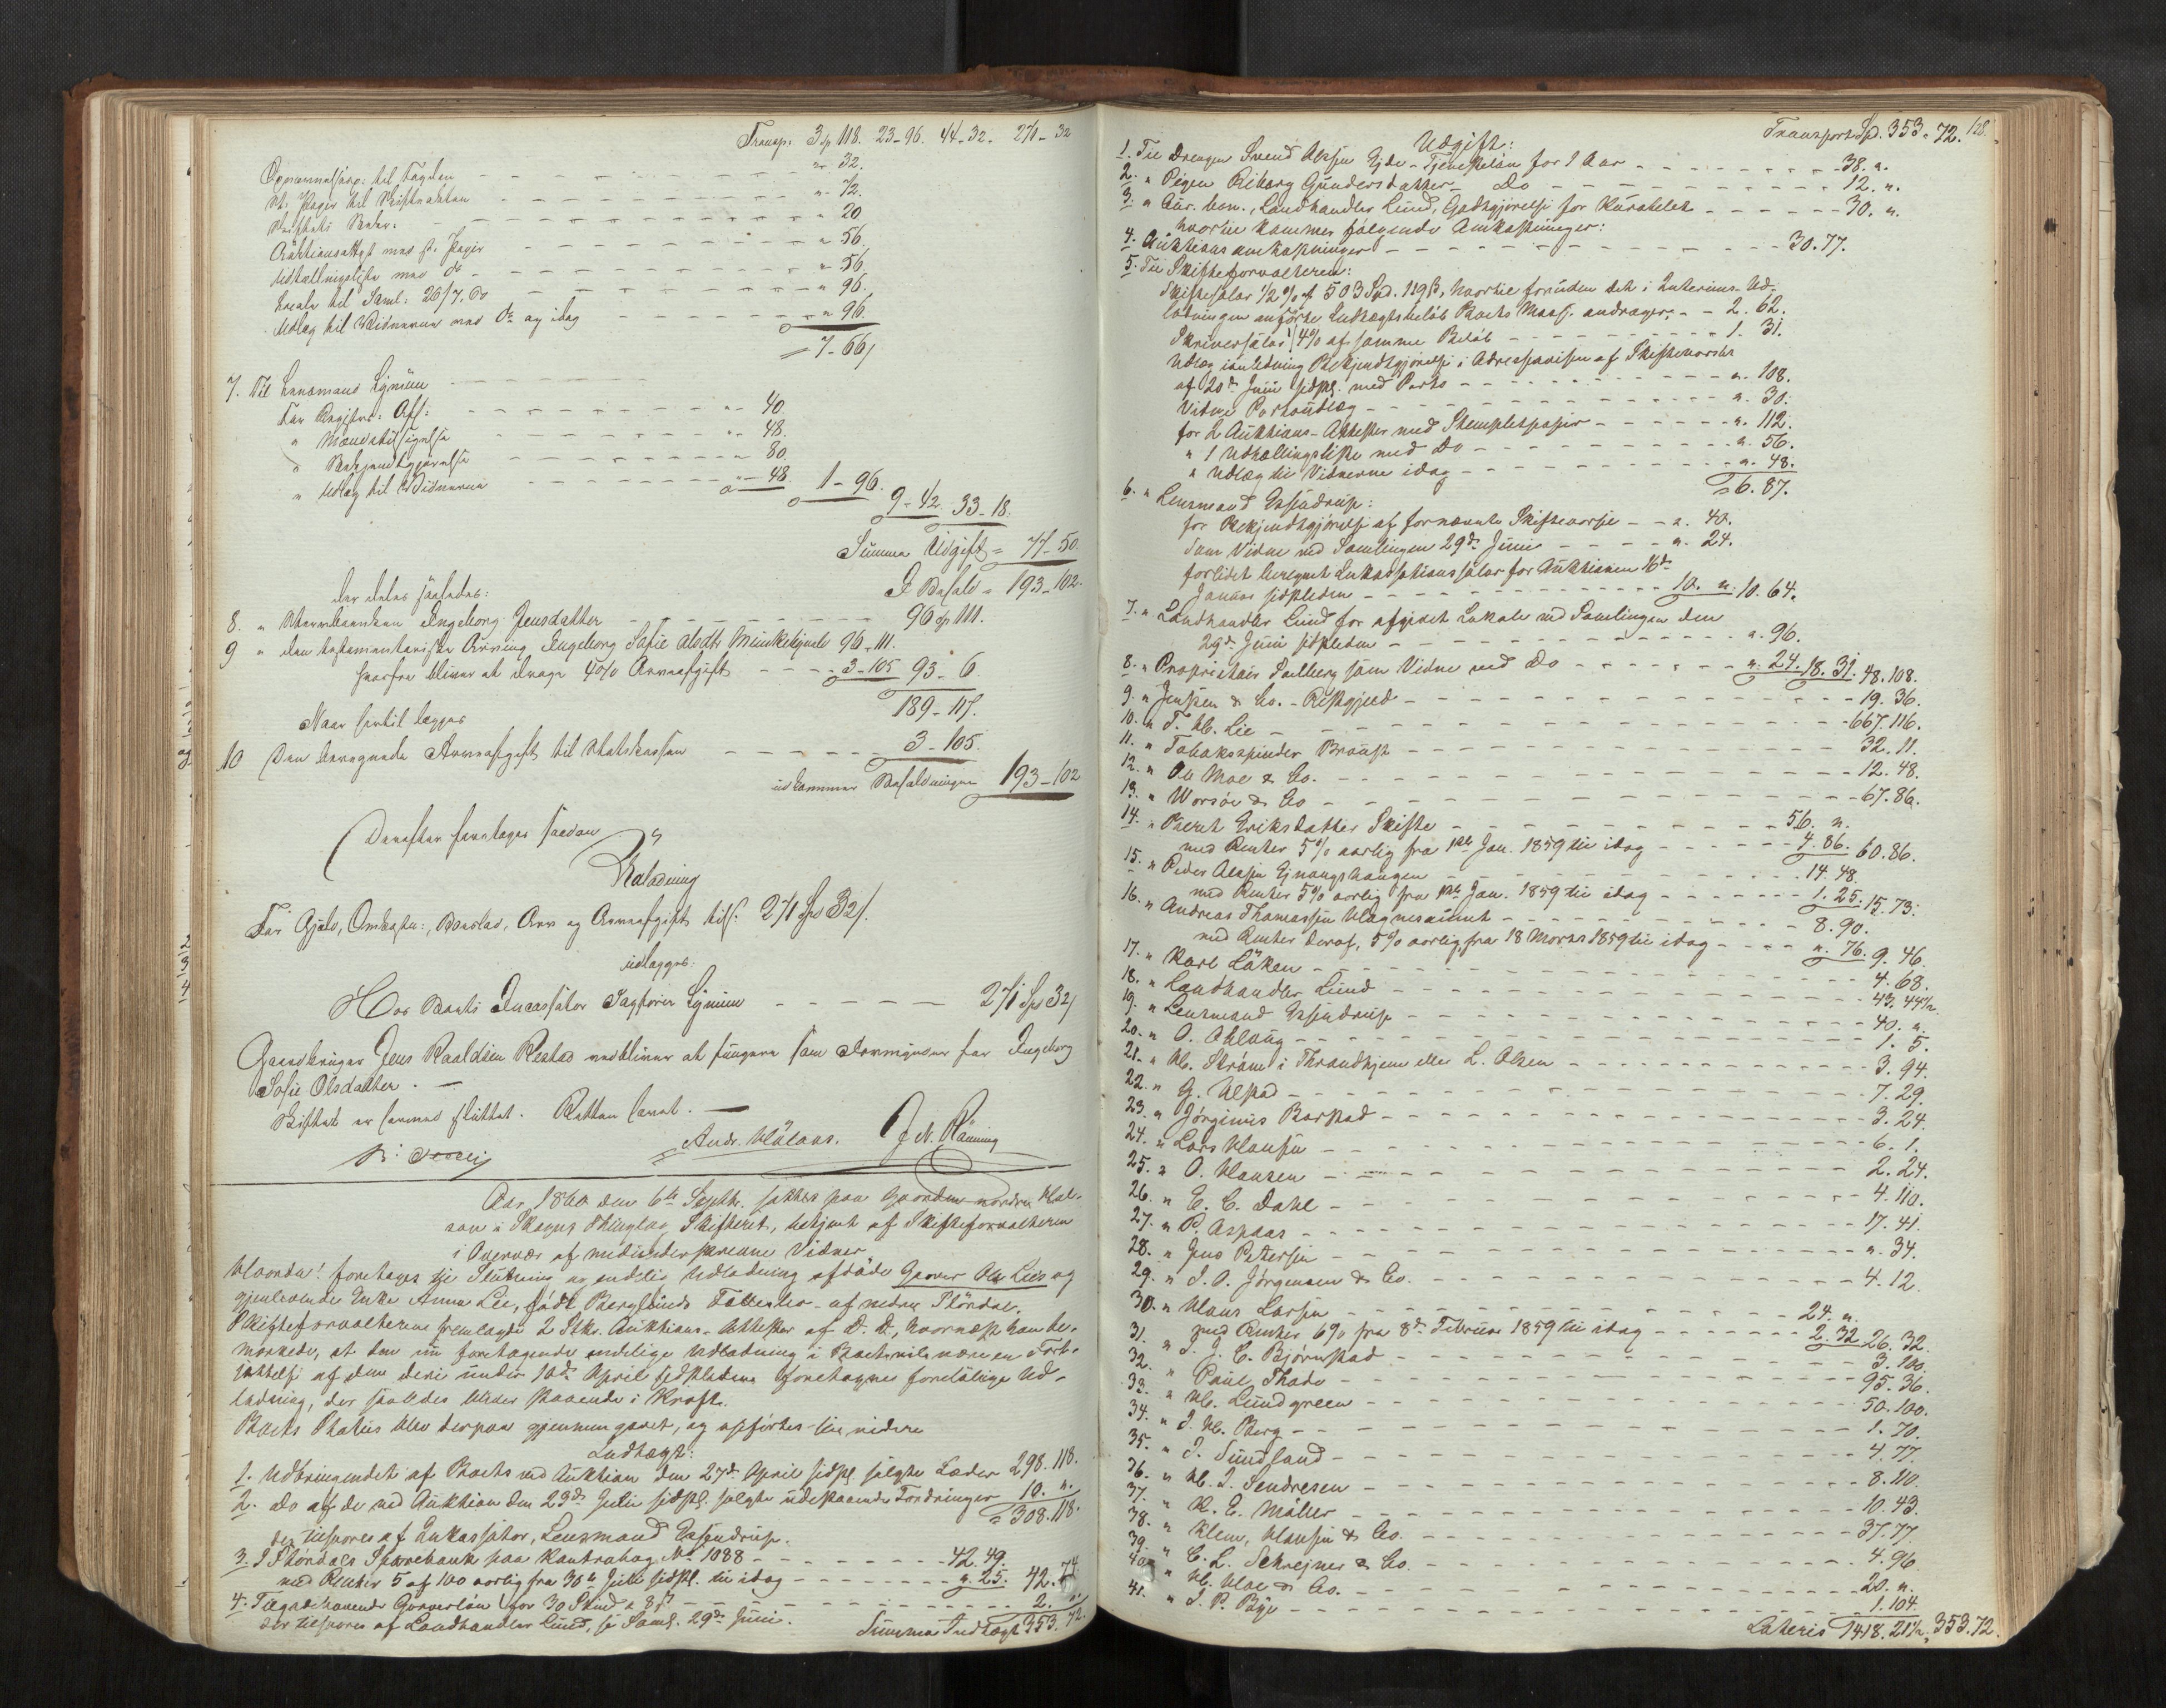 Transp. 3 sp 118. 23-96. 44-32. 271-32
Opnævnelsesp: til Fogden - - - " 32.
St. Papir til Skifteakten - - - " 72.
- - - " 20
Auktionsafgt med st. Papir - - - " 56
Udtællingsliste med do - - - " 56
Locale til Saml: 26/7. Do - - - " 96.
Udlæg til Vidnerne med Do og idag - - - " 96.
7-66
7. Til Lensmand Lynum
For Registr: Afs: - - - " 40.
" Mændstilsigelse - - - " 48.
" Bekjendtgjørelse - - - " 80.
" Udlæg til Vidnerne - - - " 48. 1-96.
9-42. 33-18.
Summa Udgift = 77-50.
I Behold = 193-102.
der deles saaledes:
8. " Ingeborg Jensdatter - - - 96 sp 111.
9 " den testamentariske Arving Ingeborg Sofie Olsdtr Munkebyvald 96-111.
hvorfra bliver at drage 4% Arveafgift - - - 3-105 93-6.
189-117.
Naar hertil lægges
10 Den beregnede Arveafgift til Statskassen - - - 3-105.
udkommer Beholdningen 193-102
Derefter foretages saadan
Udlodning
For Gjæld, Omkostn:, Boeslod, Arv og Arveafgift tils: 271 Spd 32/.
udlægges:
Hos Boets Incassator Sagfører Lynum - - - 271 Spd 32/
Gaardbruger Jens Raaldsen Restad vedbliver at fungere som Formynder for Ingeborg
Sofie Olsdatter. -
Skiftet er hermed sluttet. Retten hævet. -
Andr. J. N. Rønning
Aar 1860 den 6te Septbr. sattes paa Gaarden nordre Hal-
san i Skogns Thinglag Skifteret, betjent af Skifteforvalteren
i Overvær af medunderskrevne Vidner.
Hvorda! foretages til Slutning og endelig Udlodning afdøde Garver Ole Lies og
gjenlevende Enke Anna Lie, født Berglunds Fællesbo - af nedre Stordal.
Skifteforvalteren fremlagde 2 Stk. Auktions-Attester af D. D., hvornæst han be-
mærkede, at den nu foretagende endelige Udlodning i Boet vil være en Fort-
sættelse af den deri under 10de April sidstleden foretagne foreløbige Ud-
lodning, der saaledes bliver staaende i Kraft.
Boets Status blev derpaa gjennemgaaet, og opførtes til videre
Indtægt:
1. Udbringendet af Boets ved Auktion den 27de April sidstl. solgte Læder 298. 118.
2. do af de ved Auktion den 23de Juli sidstl. solgte udestaaende Fordringer 10. ".
= 308. 118.
der tilsvares af Inkassator, Lensmand Essendrup.
3. I Størdals Sparebank paa Kontrabog No 1088 - - - 42. 49.
med Renter 5 af 100 aarlig fra 30te Juli sidstl. til idag - - - ". 25. 42. 74
4. Tilgodehavende Garverløn for 30 Skind a 8 s - - - 2. "
der tilsvares af Landhandler Lund, se Saml. 29de Juni.
Summa Indtægt 353. 72.
Transport Spd. 353. 72. 128.
Udgift:
1. Til Drengen Svend Olsen Ejde - Tjenesteløn for 1 Aar - - - 38. ".
2. " Pigen Riborg Gundersdatter - Do - - - 12. ".
3. " Cur. bon., Landhandler Lund, Godtgjørelse for Kuratelet - - - 30. ".
hvortil kommer følgende Omkostninger:
4. Auktionsomkostninger - - - 30. 77.
5. Til Skifteforvalteren:
Skiftesalær 1/2 % af 503 Spd. 119 ß, hvortil foruden det i Interims-Ud-
lodningen anførte Indtægtsbeløb Boets Masse andrager - - 2. 62.
Skriversalær 1/4 % af samme Beløb - - - 1. 31.
Udlæg i anledning Bekjendtgjørelse i Adresseavisen af Skiftevarsler
af 20de Juni sidstl. med Porto - - - ". 108.
Vidne Portoudlæg - - - ". 30.
for 2 Auktions-Attester med Stempletpapir - - - ". 112.
" 1 Udtællingsliste med Do - - - ". 56.
" Udlæg til Vidnerne idag - - - ". 48.
= 6. 87.
6. " Lensmand Essendrup:
for Bekjendtgjørelse af fornævnte Skiftevarsel - - ". 40.
Som Vidne ved Samlingen 29de Juni - - - ". 24.
forlidt beregnet Inkassationssalær for Auktionen 16de
Januar sidstleden - - - 10. ". 10. 64.
7. " Landhandler Lund for afgivet Lokale ved Samlingen den
29de Juni sidstleden - - - ". 96.
8. " Proprietair Salberg som Vidne ved Do - - - ". 24. 18. 31. 48. 108.
9. " Jenssen & Co. - Restgjæld - - - 19. 36.
10. " T. H. Lie - - - 667. 116.
11. " Tobaksspinder Braust - - - 32. 11.
12. " Ole Moe & Co. - - - 12. 48.
13. " Worsøe & Co - - - 67. 86.
14. " Beret Eriksdatter Skifte - - - 56. ".
med Renter 5% aarlig fra 1ste Jan. 1859 til idag - - - 4. 86. 60. 86.
15. " Peder Olsen Ejnangshaugen - - - 14. 48.
med Renter 5% aarlig fra 1ste Jan. 1859 til idag - - - 1. 25. 15. 73.
16. " Andreas Thomassen Vognesaunet - - - 8. 90.
med Renter deraf, 5% aarlig fra 18 Marts 1859 til idag - - - ". 76. 9. 46.
17. " Karl Løken - - - 4. 68.
18. " Landhandler Lund - - - 43. 44 1/2.
19. " Lensmand Essendrup - - - 40. ".
20. " O. Oklaug - - - 1. 5.
21. " H. Strøm i Throndhjem eller L. Olsen - - - 3. 94.
22. " G. Ulstad - - - 7. 29.
23. " Jørginus Barstad - - - 3. 24.
24. " Lars Hansen - - - 6. 1.
25. " O. Hansen - - - 2. 24.
26. " E. C. Dahl - - - 4. 110.
27. " P. Aspaas - - - 17. 41.
28. " Jens Petersen - - - ". 34.
29. " J. O. Jørgensen & Co. - - - 4. 12.
30. " Hans Larsen - - - 24. ".
med Renter 6% fra 8de Februar 1859 til idag - - - 2. 32 26. 32.
31. " J. J. C. Bjørnstad - - - 3. 100.
32. " Paul Thode - - - 95. 36.
33. " H. Lundgreen - - - 50. 100.
34. " J. H. Berg - - - 1. 70.
35. " J. Sundland - - - 4. 77.
36. " H. J. Sendresen - - - 8. 110.
37. " H. E. Møller - - - 10. 43.
38. " Klem, Hansen & Co. - - - 37. 77
39. " C. L. Schrejner & Co. - - - 4. 96.
40. " H. Hoe & Co. - - - 20. ".
41. " J. P. Bye - - - 1. 104.
Lateris 1418. 21 1/2. 353. 72.